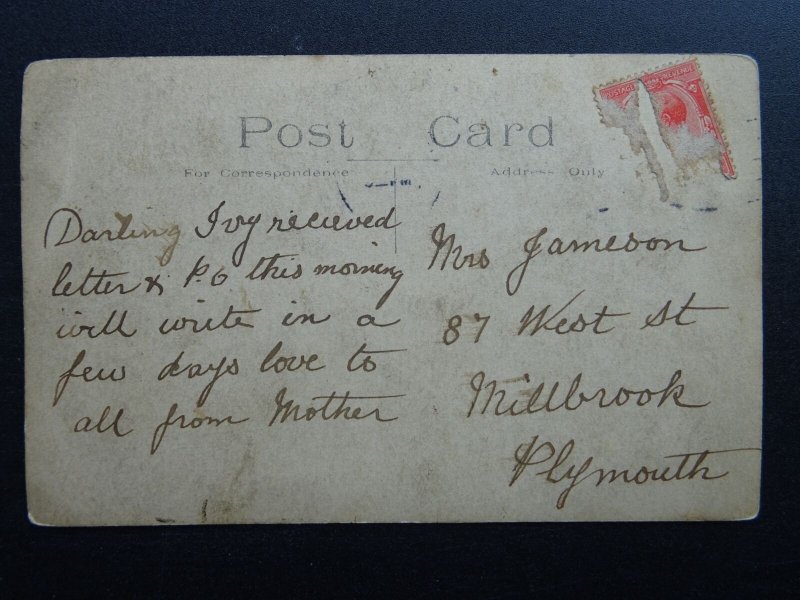 POSTAGE REVENUE
Post Card
For Correspondence
Address Only
Darling Ivy recieved
letter & P.O this morning
will write in a
few days love to
all from Mother
Mrs Jameson
87 West St
Millbrook
Plymouth